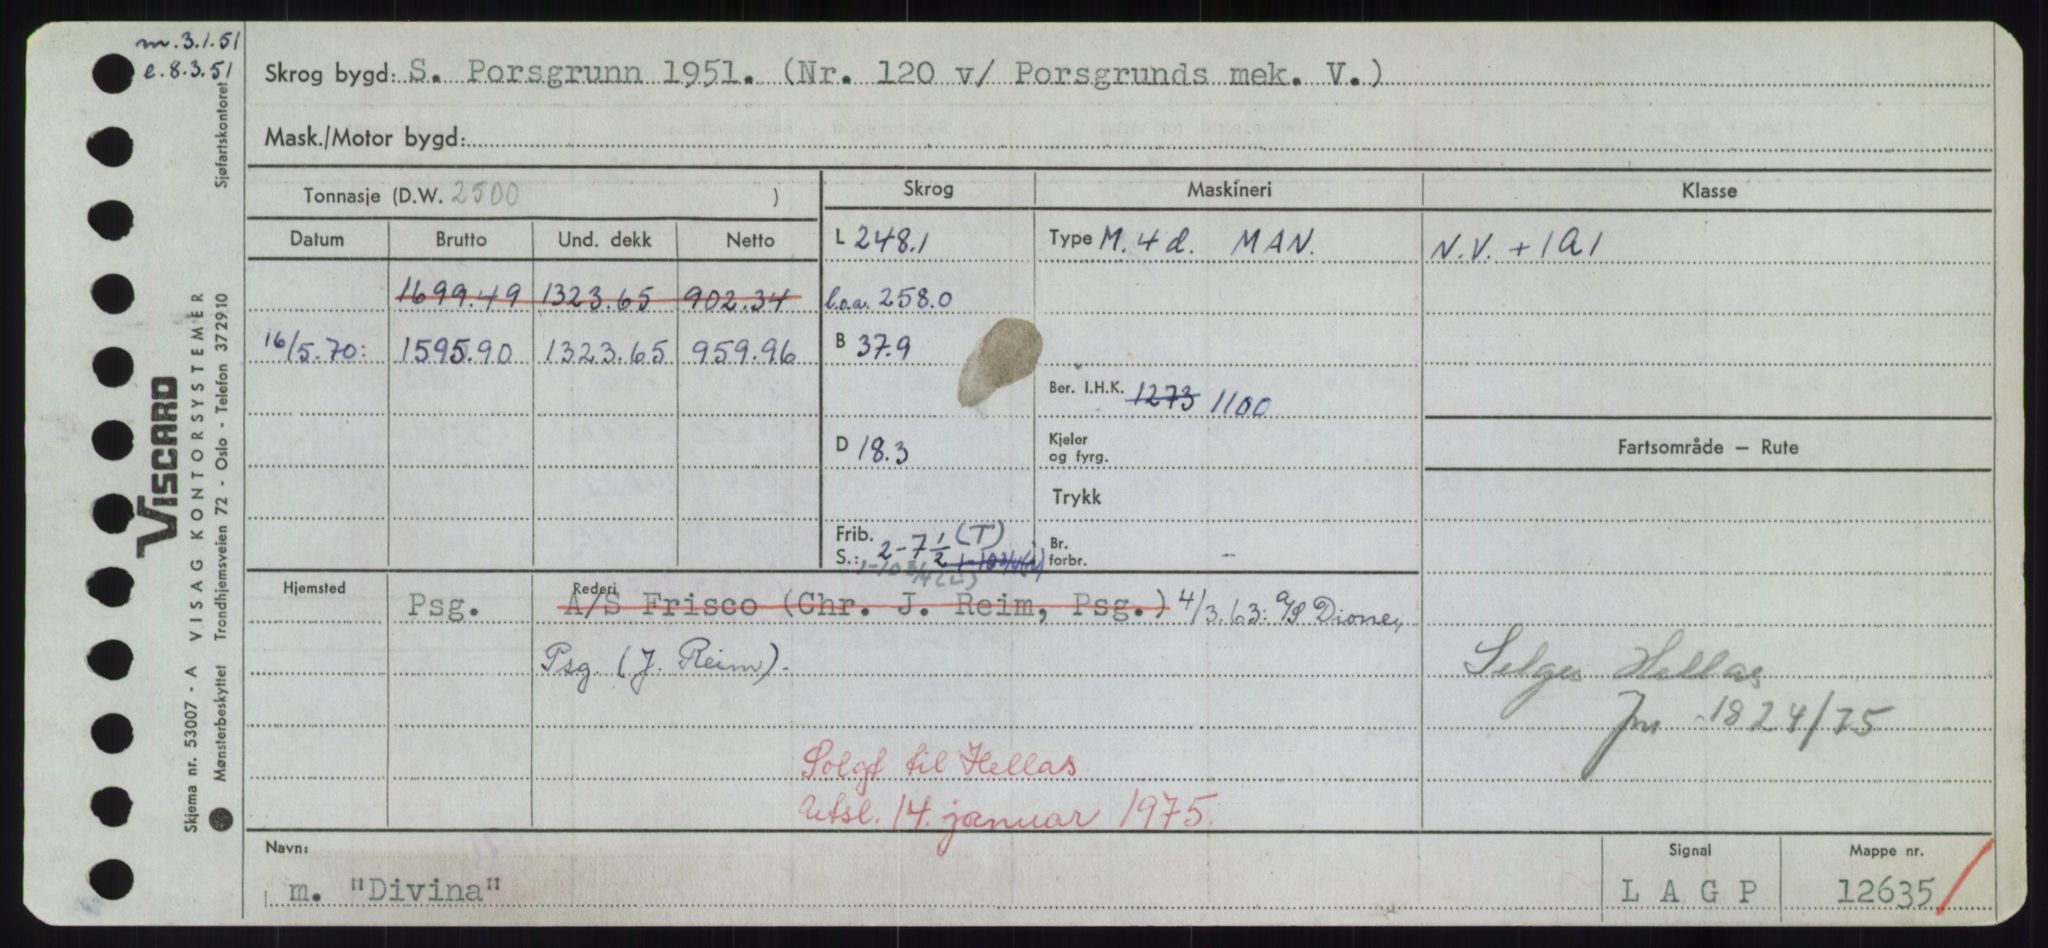 m.3.1.51
e.8.3.51
Skrog bygd: S. Porsgrunn 1951. (Nr. 120 v/ Porsgrunds mek. V.)
Mask./Motor bygd:
Tonnasje (D.W. 2500 )
Skrog
Maskineri
Klasse
Datum Brutto Und. dekk Netto
L 248.1
Type M. 4 d. MAN.
N.V. + 1A1
1699.49 1323.65 902.34
l.o.a. 258.0
16/5.70: 1595.90 1323.65 959.96
B 37.9
Ber. I.H.K. 1273 1100
D 18.3
Kjeler
og fyrg.
Fartsområde — Rute
Trykk
Frib.
S.: 2-7 1/2 (T)
1-10 3/4 (L)
Br.
forbr.
Hjemsted
Psg.
Rederi
A/S Frisco (Chr. J. Reim, Psg.) 4/3.63: A/S Dione,
Psg. (J. Reim).
Selges Hellas
Jnr 1824/75
Solgt til Hellas
Utsl. 14. januar 1975.
Navn:
m. "Divina"
Signal
L A G P
Mappe nr.
12635
Sjøfartskontoret
VISCARD
VISAG KONTORSYSTEMER
Skjema nr. 53007 - A
Mønsterbeskyttet Trondhjemsveien 72 - Oslo - Telefon 372910